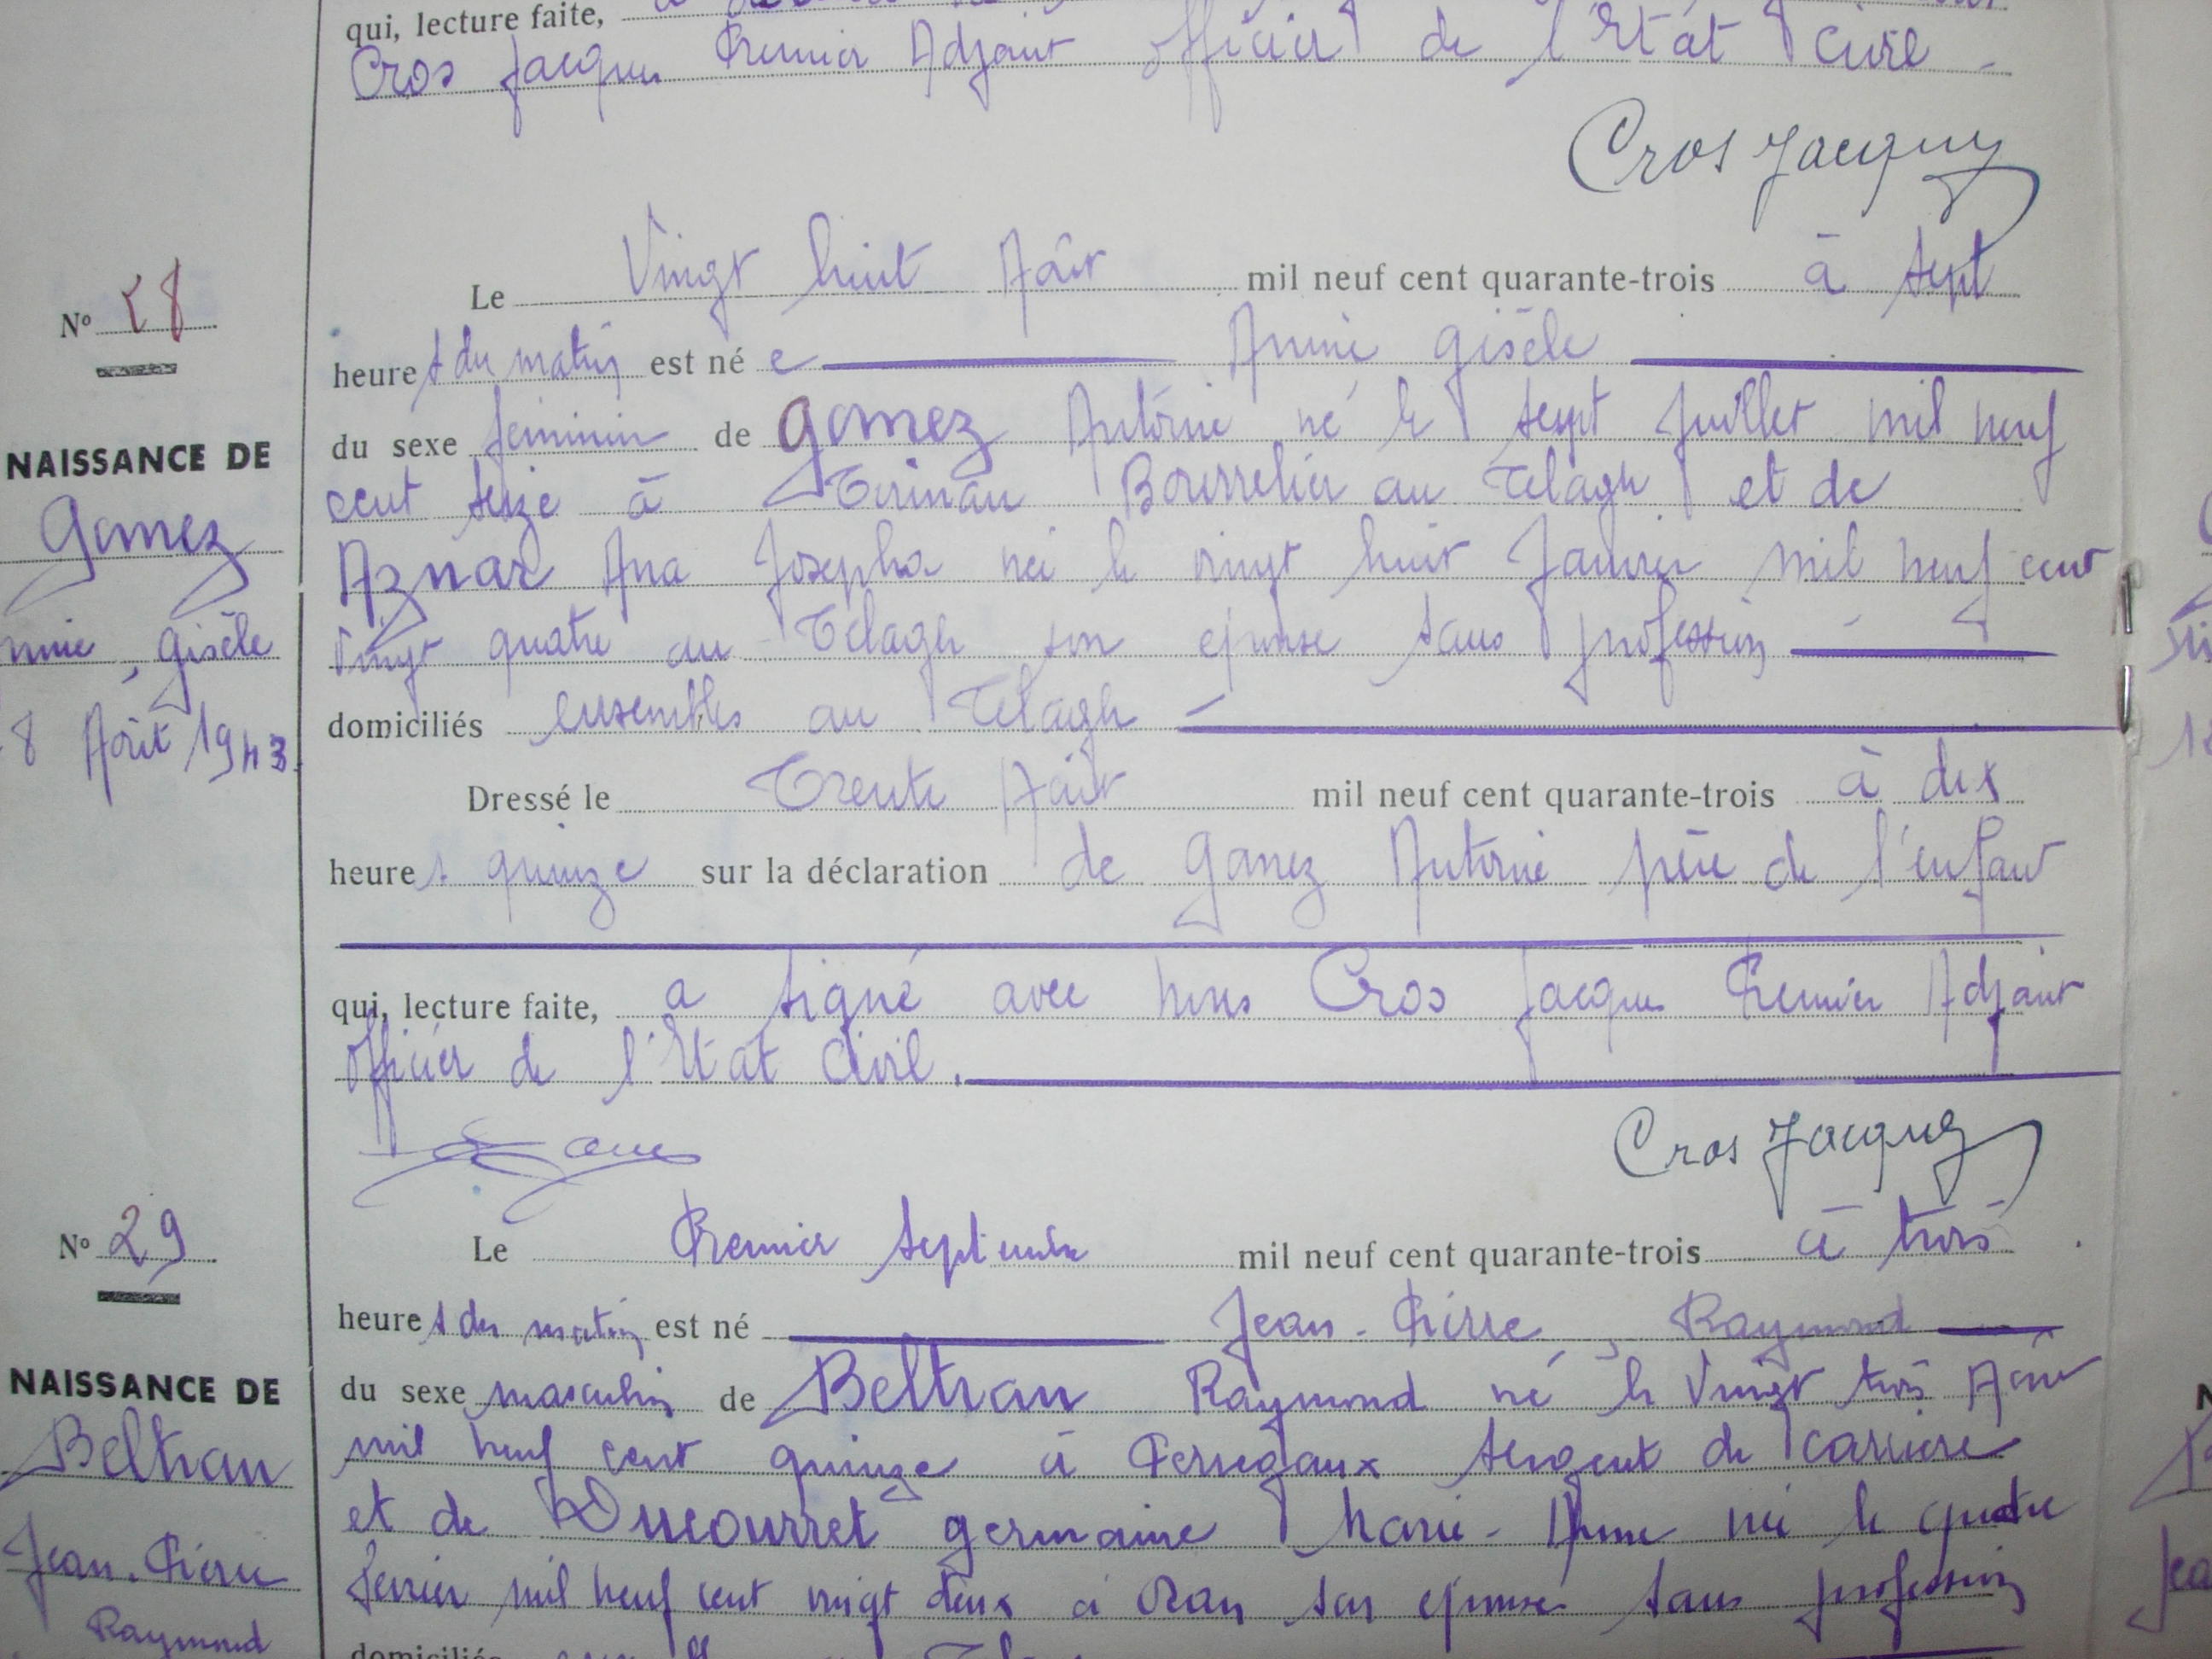 qui, lecture faite,
Cros Jacques Premier Adjoint officier de l'Etat Civil -
Cros Jacques
Le Vingt huit Août mil neuf cent quarante-trois à sept
N° 28
heures du matin est née Annie Gisèle
du sexe féminin de Gomez Antoine né le sept Juillet mil neuf
NAISSANCE DE
cent seize à Tirman Bourrelier au Télagh et de
Gomez
Aznar Ana Josepha née le vingt huit Janvier mil neuf cent
nnie, Gisèle
vingt quatre au Télagh son épouse sans profession
8 Août 1943
domiciliés ensembles au Télagh
Dressé le Trente Août mil neuf cent quarante-trois à dix
heures quinze sur la déclaration de Gomez Antoine père de l'enfant
qui, lecture faite, a signé avec nous Cros Jacques Premier Adjoint
officier de l'Etat Civil.
Cros Jacques
Le Premier Septembre mil neuf cent quarante-trois à trois
N° 29
heures du matin est né Jean-Pierre, Raymond
du sexe masculin de Beltran Raymond né le Vingt trois Août
NAISSANCE DE
mil neuf cent quinze à Perregaux sergent de carrière
Beltran
et de Ducourret Germaine Marie-Anne née le quatre
Jean-Pierre
février mil neuf cent vingt deux à Oran son épouse sans profession
Raymond
domiciliés